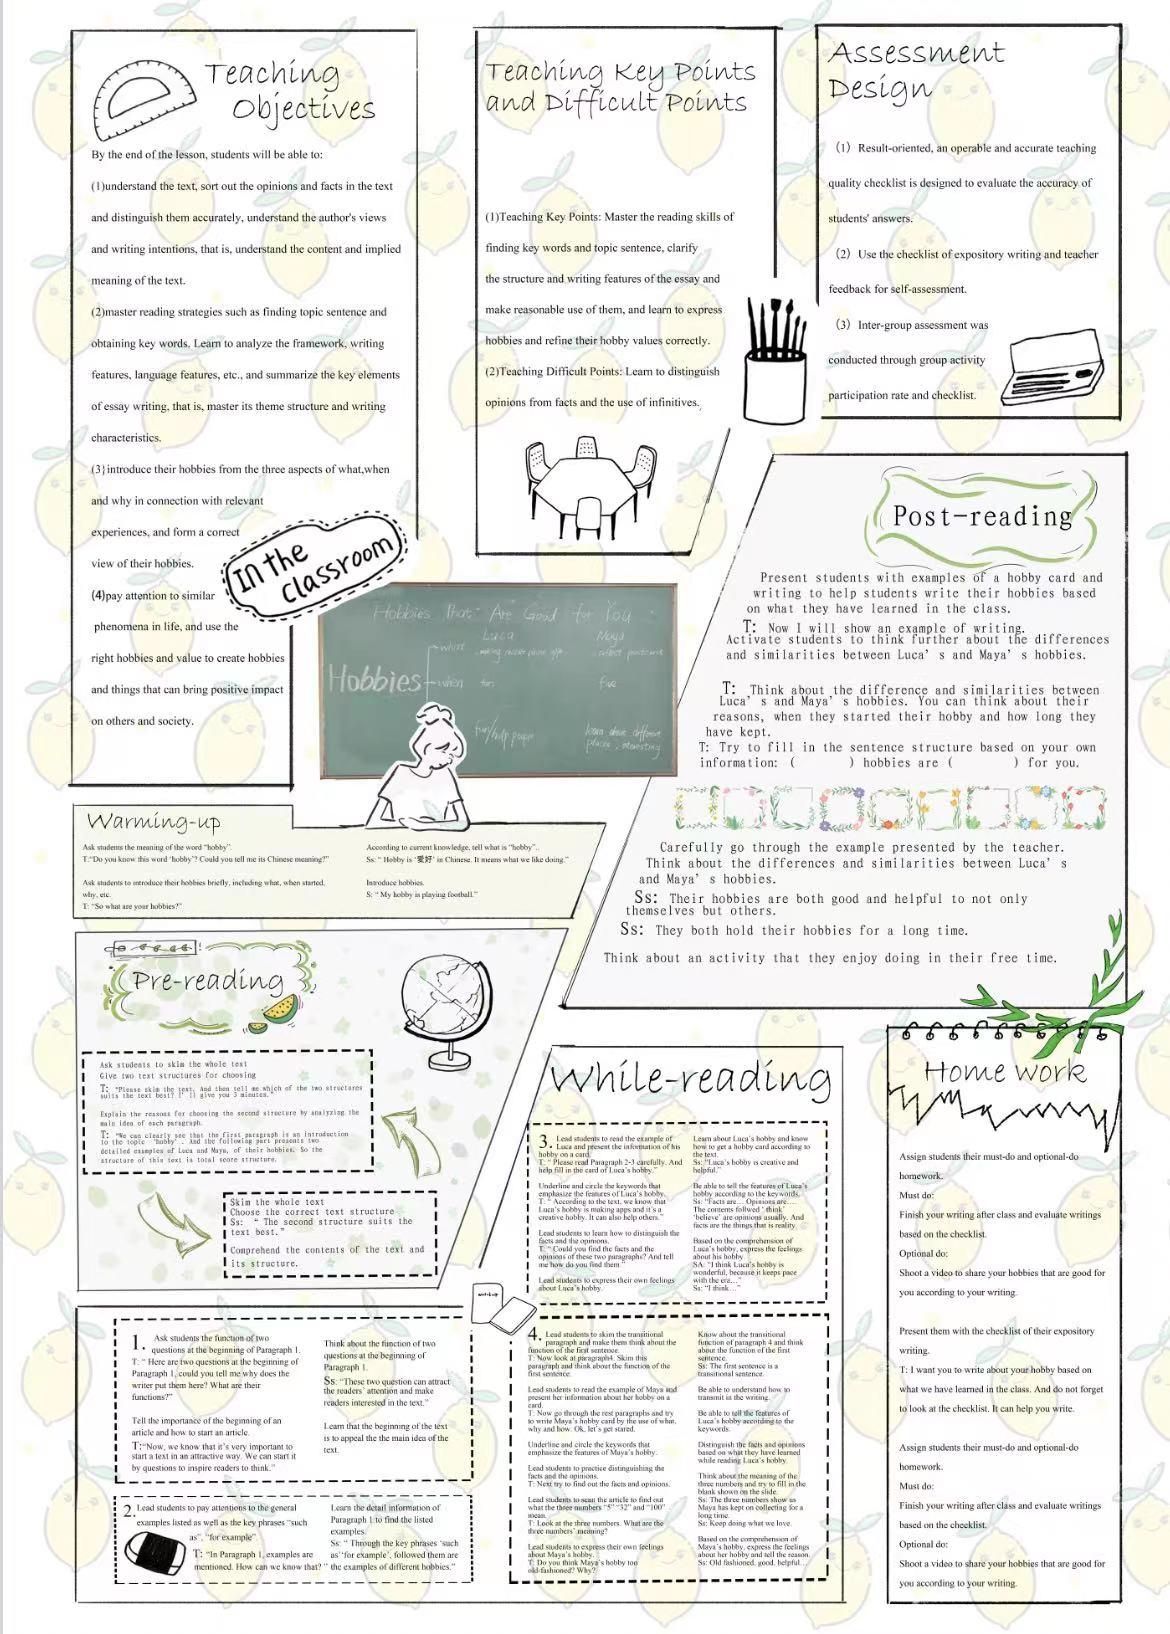 Teaching
Objectives
By the end of the lesson, students will be able to:
(1)understand the text, sort out the opinions and facts in the text
and distinguish them accurately, understand the author's views
and writing intentions, that is, understand the content and implied
meaning of the text.
(2)master reading strategies such as finding topic sentence and
obtaining key words. Learn to analyze the framework, writing
features, language features, etc., and summarize the key elements
of essay writing, that is, master its theme structure and writing
characteristics.
(3)introduce their hobbies from the three aspects of what,when
and why in connection with relevant
experiences, and form a correct
view of their hobbies.
(4)pay attention to similar
phenomena in life, and use the
right hobbies and value to create hobbies
and things that can bring positive impact
on others and society.
Teaching Key Points
and Difficult Points
(1)Teaching Key Points: Master the reading skills of
finding key words and topic sentence, clarify
the structure and writing features of the essay and
make reasonable use of them, and learn to express
hobbies and refine their hobby values correctly.
(2)Teaching Difficult Points: Learn to distinguish
opinions from facts and the use of infinitives.
Assessment
Design
（1）Result-oriented, an operable and accurate teaching
quality checklist is designed to evaluate the accuracy of
students' answers.
（2）Use the checklist of expository writing and teacher
feedback for self-assessment.
（3）Inter-group assessment was
conducted through group activity
participation rate and checklist.
In the
classroom
Hobbies That Are Good for You
Luca Maya
Hobbies
what making phone app collect postcards
when ten five
fun/help people
learn about different
places, interesting
Post-reading
Present students with examples of a hobby card and
writing to help students write their hobbies based
on what they have learned in the class.
T: Now I will show an example of writing.
Activate students to think further about the differences
and similarities between Luca’s and Maya’s hobbies.
T: Think about the difference and similarities between
Luca’s and Maya’s hobbies. You can think about their
reasons, when they started their hobby and how long they
have kept.
T: Try to fill in the sentence structure based on your own
information: ( ) hobbies are ( ) for you.
Carefully go through the example presented by the teacher.
Think about the differences and similarities between Luca’s
and Maya’s hobbies.
Ss: Their hobbies are both good and helpful to not only
themselves but others.
Ss: They both hold their hobbies for a long time.
Think about an activity that they enjoy doing in their free time.
Warming-up
Ask students the meaning of the word “hobby”.
T:“Do you know this word ‘hobby’? Could you tell me its Chinese meaning?”
Ask students to introduce their hobbies briefly, including what, when started,
why, etc.
T: “So what are your hobbies?”
According to current knowledge, tell what is “hobby”..
Ss: “ Hobby is ‘爱好’ in Chinese. It means what we like doing.”
Introduce hobbies.
S: “ My hobby is playing football.”
Pre-reading
Ask students to skim the whole text
Give two text structures for choosing
T: “Please skim the text. And then tell me which of the two structures
suits the text best? I’ll give you 3 minutes.”
Explain the reasons for choosing the second structure by analyzing the
main idea of each paragraph.
T: “We can clearly see that the first paragraph is an introduction
to the topic ‘hobby’. And the following part presents two
detailed examples of Luca and Maya, of their hobbies. So the
structure of this text is total score structure.
Skim the whole text
Choose the correct text structure
Ss: “ The second structure suits the
text best.”
Comprehend the contents of the text and
its structure.
While-reading
1. Ask students the function of two
questions at the beginning of Paragraph 1.
T: “ Here are two questions at the beginning of
Paragraph 1, could you tell me why does the
writer put them here? What are their
functions?”
Tell the importance of the beginning of an
article and how to start an article.
T:“Now, we know that it’s very important to
start a text in an attractive way. We can start it
by questions to inspire readers to think.”
Think about the function of two
questions at the beginning of
Paragraph 1.
Ss: “These two question can attract
the readers’ attention and make
readers interested in the text.”
Learn that the beginning of the text
is to appeal the the main idea of the
text.
2. Lead students to pay attentions to the general
examples listed as well as the key phrases “such
as”, “for example”.
T: “In Paragraph 1, examples are
mentioned. How can we know that? ”
Learn the detail information of
Paragraph 1 to find the listed
examples.
Ss: “ Through the key phrases ‘such
as’‘for example’, followed them are
the examples of different hobbies.”
3. Lead students to read the example of
Luca and present the information of his
hobby on a card.
T: “ Please read Paragraph 2-3 carefully. And
help fill in the card of Luca’s hobby.”
Underline and circle the keywords that
emphasize the features of Luca’s hobby.
T: “ According to the text, we know that
Luca’s hobby is making apps and it’s a
creative hobby. It can also help others.”
Lead students to learn how to distinguish the
facts and the opinions.
T: “ Could you find the facts and the
opinions of these two paragraphs? And tell
me how do you find them ”
Lead students to express their own feelings
about Luca’s hobby.
Learn about Luca’s hobby and know
how to get a hobby card according to
the text.
Ss: “Luca’s hobby is creative and
helpful.”
Be able to tell the features of Luca’s
hobby according to the keywords.
Ss: “Facts are… Opinions are….
The contents follwed ‘ think’
‘believe’ are opinions usually. And
facts are the things that is reality.
Based on the comprehension of
Luca’s hobby, express the feelings
about his hobby
SA: “I think Luca’s hobby is
wonderful, because it keeps pace
with the era…”
Ss: “I think…”
4. Lead students to skim the transitional
paragraph and make them think about the
function of the first sentence.
T: Now look at paragraph4. Skim this
paragraph and think about the function of the
first sentence.
Lead students to read the example of Maya and
present her information about her hobby on a
card.
T: Now go through the rest paragraphs and try
to write Maya’s hobby card by the use of what,
why and how. Ok, let’s get stared.
Underline and circle the keywords that
emphasize the features of Maya’s hobby.
Lead students to practice distinguishing the
facts and the opinions.
T: Next try to find out the facts and opinions.
Lead students to scan the article to find out
what the three numbers “5” “32” and “100”
mean.
T: Look at the three numbers. What are the
three numbers’ meaning?
Lead students to express their own feelings
about Maya’s hobby.
T: Do you think Maya’s hobby too
old-fashioned? Why?
Know about the transitional
function of paragraph 4 and think
about the function of the first
sentence.
Ss: The first sentence is a
transitional sentence.
Be able to understand how to
transmit in the writing.
Be able to tell the features of
Luca’s hobby according to the
keywords.
Distinguish the facts and opinions
based on what they have learned
while reading Luca’s hobby.
Think about the meaning of the
three numbers and try to fill in the
blank shown on the slide.
Ss: The three numbers show us
Maya has kept on collecting for a
long time.
Ss: Keep doing what we love.
Based on the comprehension of
Maya’s hobby, express the feelings
about her hobby and tell the reason.
Ss: Old fashioned, good, helpful…
Home work
Assign students their must-do and optional-do
homework.
Must do:
Finish your writing after class and evaluate writings
based on the checklist.
Optional do:
Shoot a video to share your hobbies that are good for
you according to your writing.
Present them with the checklist of their expository
writing.
T: I want you to write about your hobby based on
what we have learned in the class. And do not forget
to look at the checklist. It can help you write.
Assign students their must-do and optional-do
homework.
Must do:
Finish your writing after class and evaluate writings
based on the checklist.
Optional do:
Shoot a video to share your hobbies that are good for
you according to your writing.